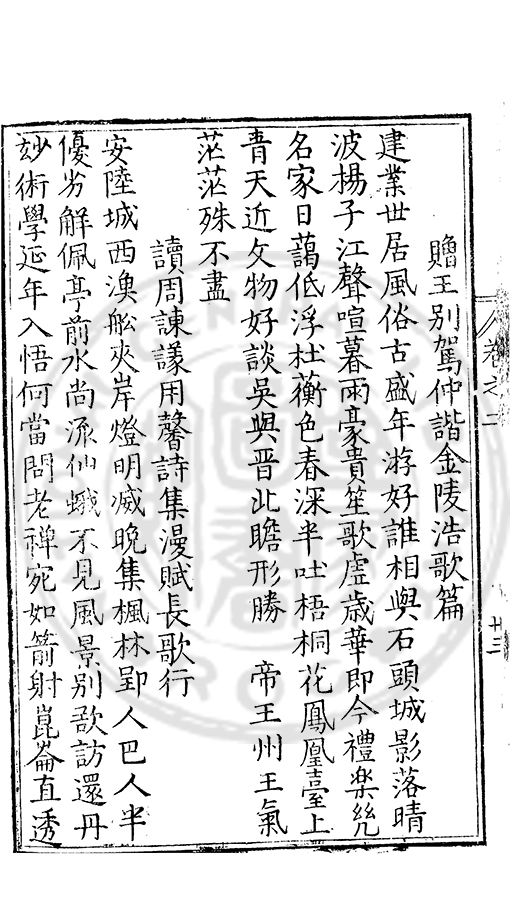 贈王別駕仲諧金陵浩歌篇
建業世居風俗古盛年游好誰相與石頭城影落晴
波楊子江聲喧暮雨豪貴笙歌虛歲華即今禮樂㡬
名家日藹低浮杜蘅色春深半吐梧桐花鳳凰臺上
青天近文物好談吳與晋此瞻形勝　帝王州王氣
茫茫殊不盡
讀周諫議用馨詩集漫賦長歌行
安陸城西漁舩夾岸燈明滅晚集楓林郢人巴人半
優劣解佩亭前水尚流仙蛾不見風景別欲訪還丹
玅術學延年入悟何當問老禪宛如箭射崑崙直透
卷之二
廿三